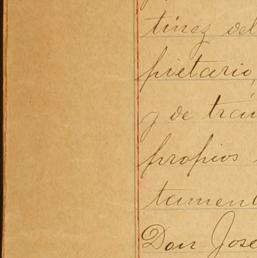 tinez del
pietario,
y de trá
propios
tament
Don José